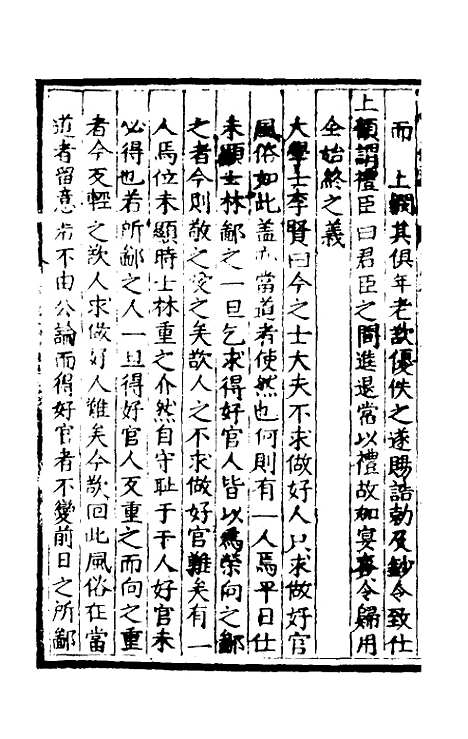 而　上憫其俱年老欲優佚之遂賜誥勅及鈔令致仕
上顧謂禮臣曰君臣之間進退當以禮故加宴賚令歸用
全始終之義
大學士李賢曰今之士大夫不求做好人只求做好官
風俗如此盖亦當道者使然也何則有一人焉平日仕
未顯士林鄙之一旦乞求得好官人皆以為榮向之鄙
之者今則敬之愛之矣欲人之不求做好官難矣有一
人焉位未顯時士林重之介然自守耻于干人好官未
必得也若所鄙之人一旦得好官人反重之而向之重
者今反輕之欲人求做好人難矣今欲回此風俗在當
道者留意若不由公論而得好官者不變前日之所鄙